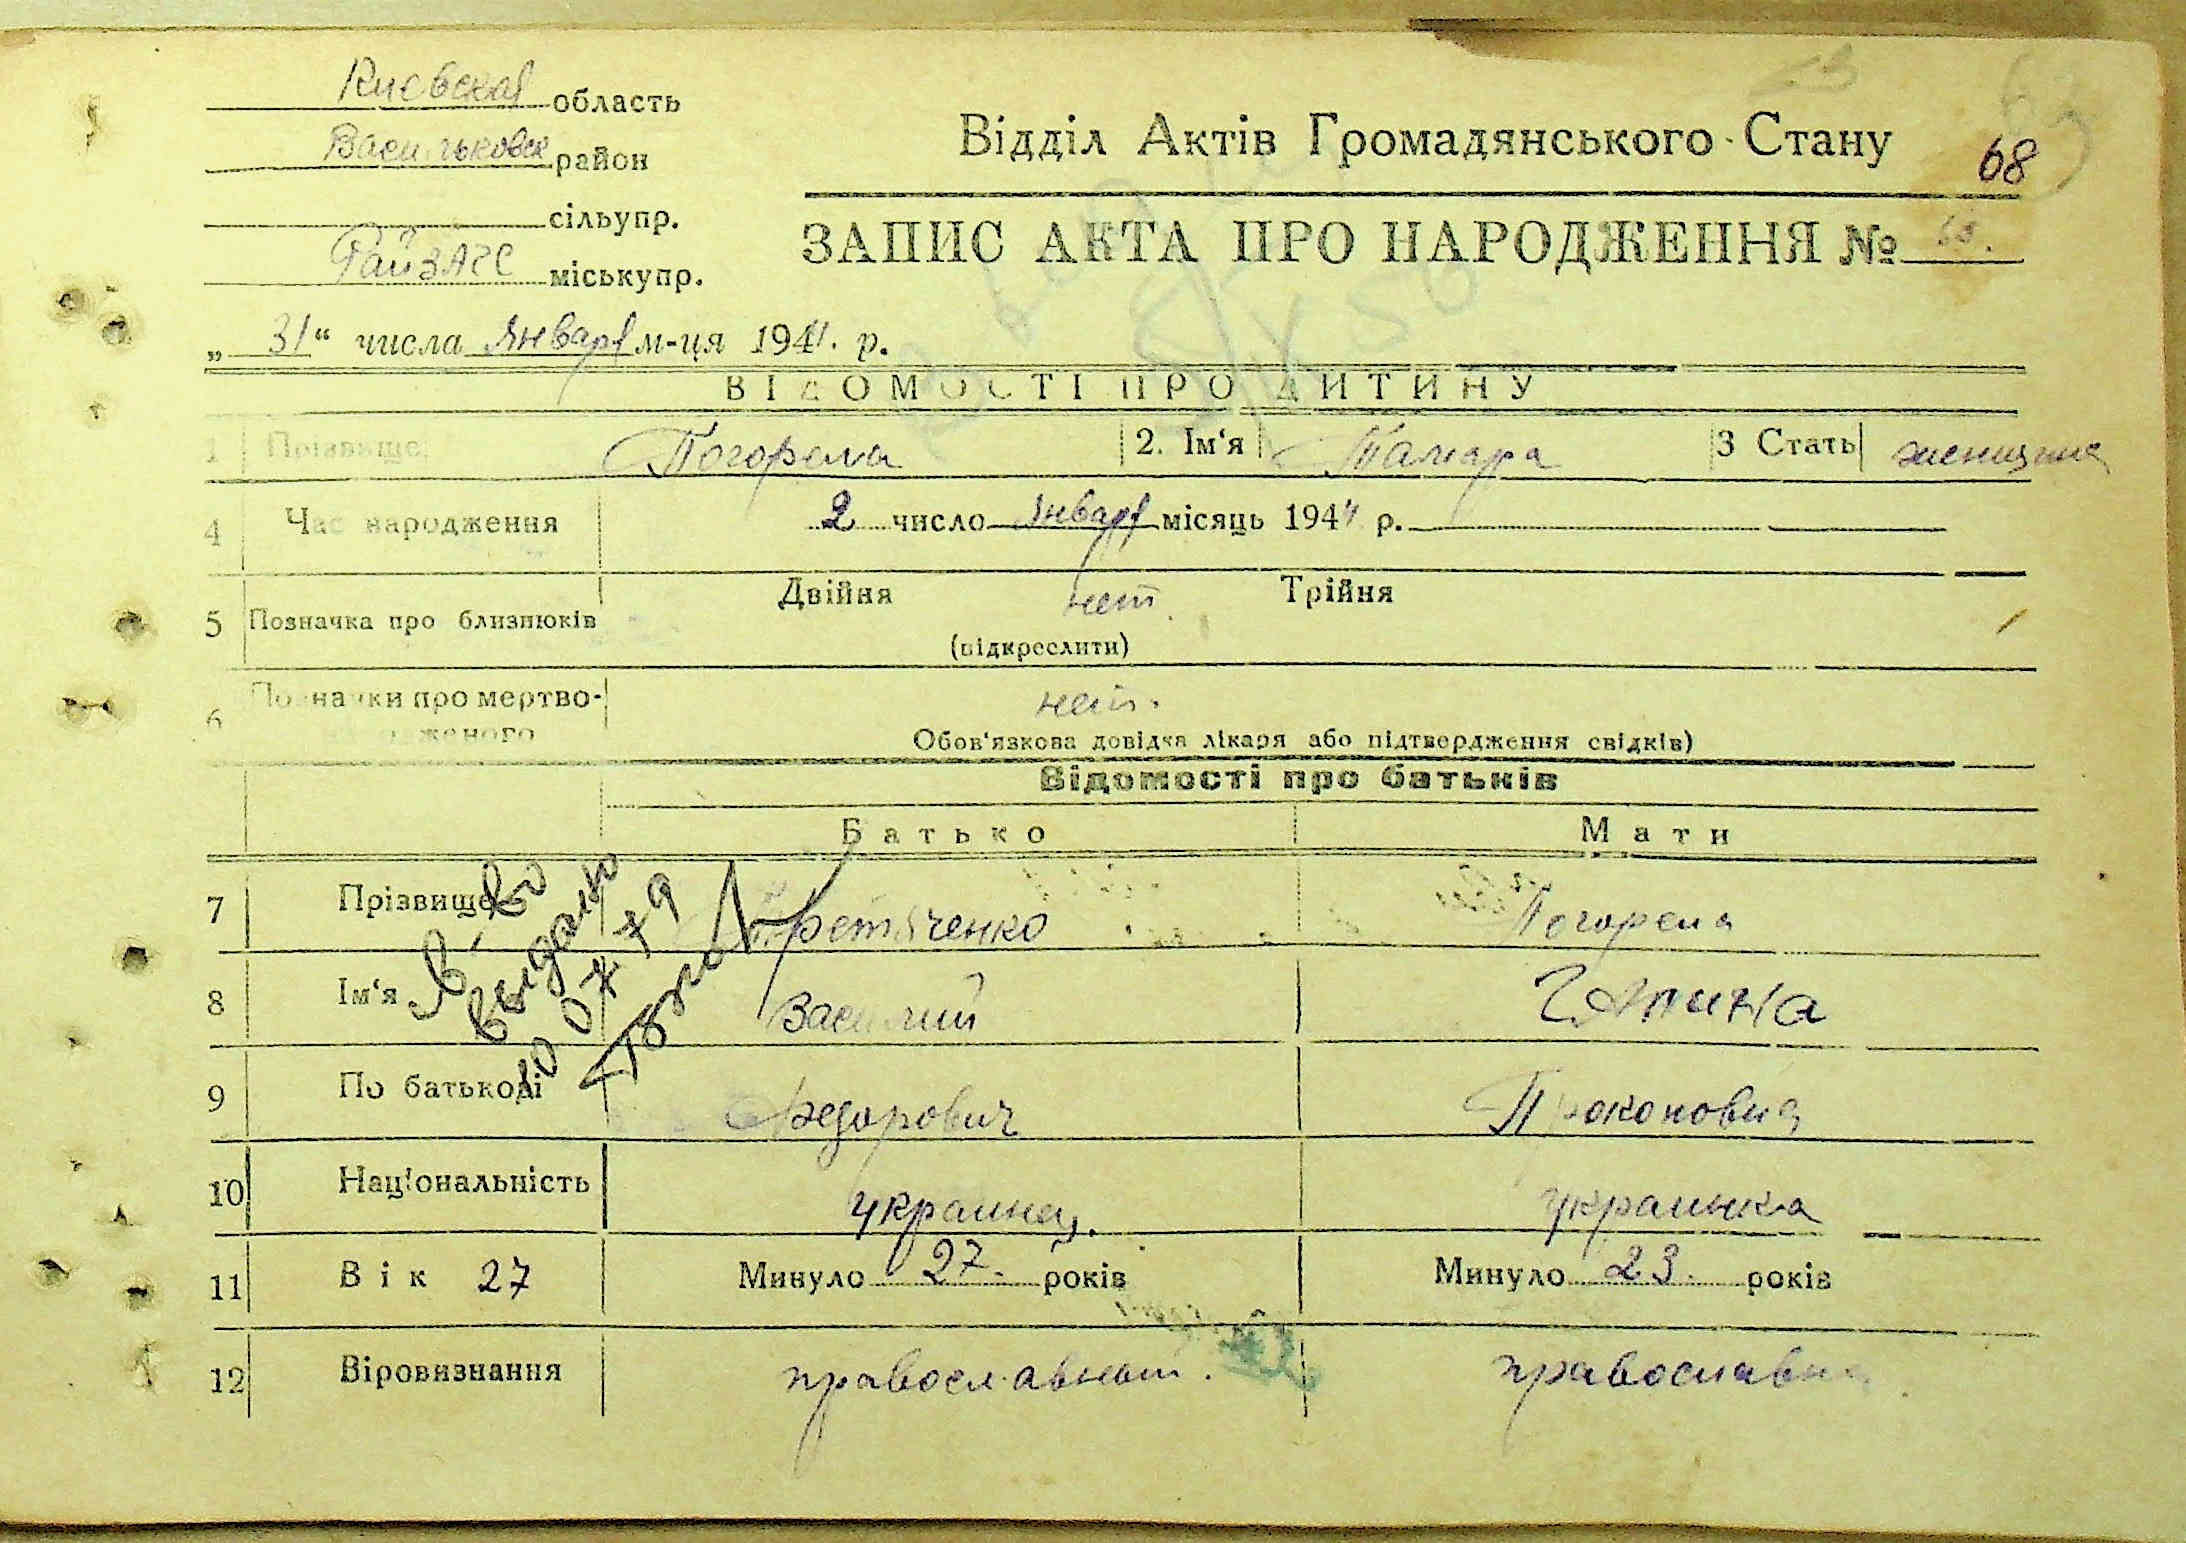 Киевская область
Васильковск район
сільупр.
РайЗАГС міськупр.
Відділ Актів Громадянського Стану
68
ЗАПИС АКТА ПРО НАРОДЖЕННЯ №
„ 31 “ числа января м-ця 194 . р.
ВІДОМОСТІ ПРО ДИТИНУ
1 Прізвище Погорела 2. Ім‘я Тамара 3 Стать женщина
4 Час народження 2 число января місяць 1944 р.
5 Позначка про близнюків Двійня нет. Трійня
(відкреслити)
6 Позначки про мертво-
нет.
Обов‘язкова довідка лікаря або підтвердження свідків)
Відомості про батьків
Батько Мати
7 Прізвище Третяченко Погорела
8 Ім‘я Василий Галина
9 По батькові Федорович Прокоповна
10 Національність украинец. украинка
11 Вік 27 Минуло 27. років Минуло 23. років
12 Віровизнання православный. православна
выдано
10 07 79